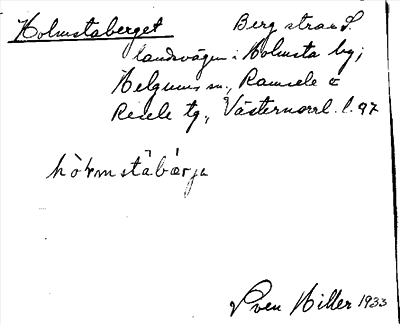 Holmstaberget Berg strax S.
landsvägen i Holmsta by,
Helgums sn., Ramsele &
Resele tg., Västernorrl. l. 97
hòℓmstàbærja
Sven Hiller 1933